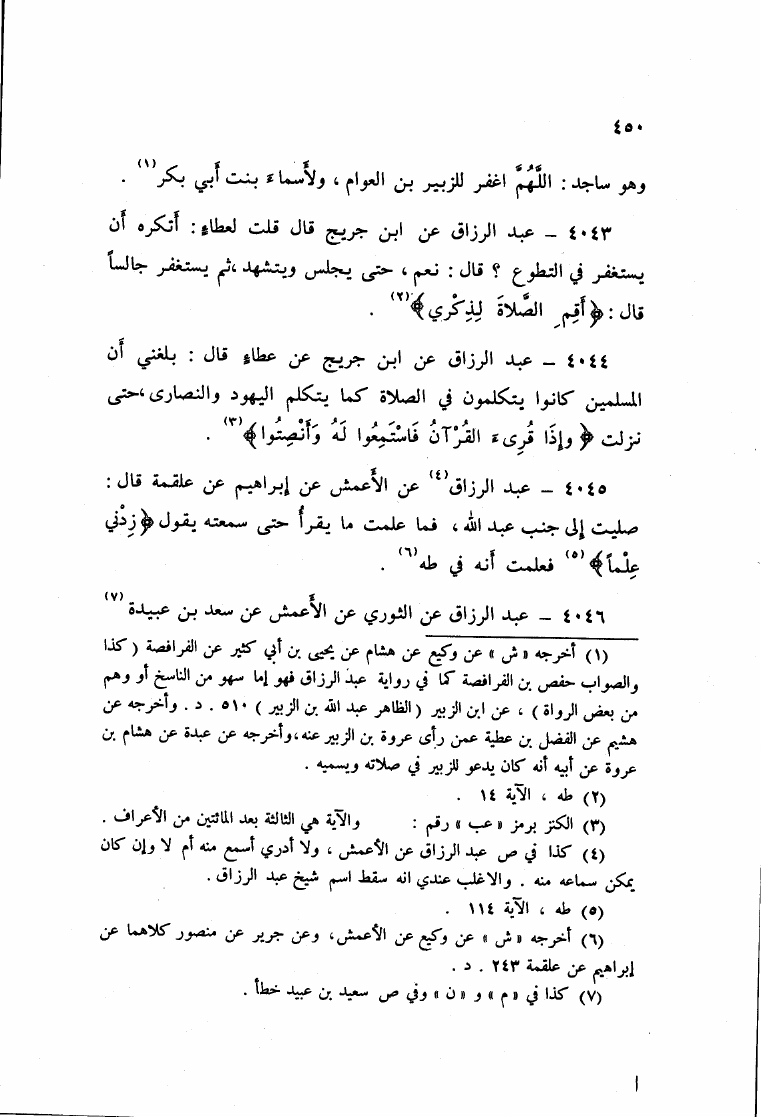 ٤٥٠
وهو ساجد : اللَّهُمَّ اغفر للزبير بن العوام ، ولأَسماءَ بنت أَبي بكر(١) .
٤٠٤٣ – عبد الرزاق عن ابن جريج قال قلت لعطاءٍ : أَتكره أَن
يستغفر في التطوع ؟ قال : نعم ، حتى يجلس ويتشهد ،ثم يستغفر جالساً
قال : ﴿أَقِمِ الصَّلاَةَ لِذِكْرِي﴾(٢) .
٤٠٤٤ – عبد الرزاق عن ابن جريج عن عطاءٍ قال : بلغني أَن
المسلمين كانوا يتكلمون في الصلاة كما يتكلم اليهود والنصارى ،حتى
نزلت ﴿ وإِذَا قُرِىءَ القُرْآنُ فَاسْتَمِعُوا لَهُ وَأَنْصِتُوا﴾(٣) .
٤٠٤٥ – عبد الرزاق(٤) عن الأَعمش عن إِبراهيم عن علقمة قال :
صليت إِلى جنب عبد الله ، فما علمت ما يقرأُ حتى سمعته يقول ﴿زِدْنِي
عِلْماً﴾(٥) فعلمت أَنه في طه(٦) .
٤٠٤٦ – عبد الرزاق عن الثوري عن الأَعمش عن سعد بن عبيدة(٧)
(١) أخرجه «ش» عن وكيع عن هشام عن يحيى بن أبي كثير عن الفرافصة ( كذا
والصواب حفص بن الفرافصة كما في رواية عبد الرزاق فهو إما سهو من الناسخ أو وهم
من بعض الرواة ) ، عن ابن الزبير ( الظاهر عبد الله بن الزبير ) ٥١٠ . د . وأخرجه عن
هشيم عن الفضل بن عطية عمن رأى عروة بن الزبير عنه،وأخرجه عن عبدة عن هشام بن
عروة عن أبيه أنه كان يدعو للزبير في صلاته ويسميه .
(٢) طه ، الآية ١٤ .
(٣) الكنز برمز «عب» رقم : والآية هي الثالثة بعد المائتين من الأعراف .
(٤) كذا في ص عبد الرزاق عن الأعمش ، ولا أدري أسمع منه أم لا وإن كان
يمكن سماعه منه . والاغلب عندي انه سقط اسم شيخ عبد الرزاق .
(٥) طه ، الآية ١١٤ .
(٦) أخرجه «ش» عن وكيع عن الأعمش، وعن جرير عن منصور كلاهما عن
إبراهيم عن علقمة ٢٤٣ . د .
(٧) كذا في «م» و «ن» وفي ص سعيد بن عبيد خطأ .